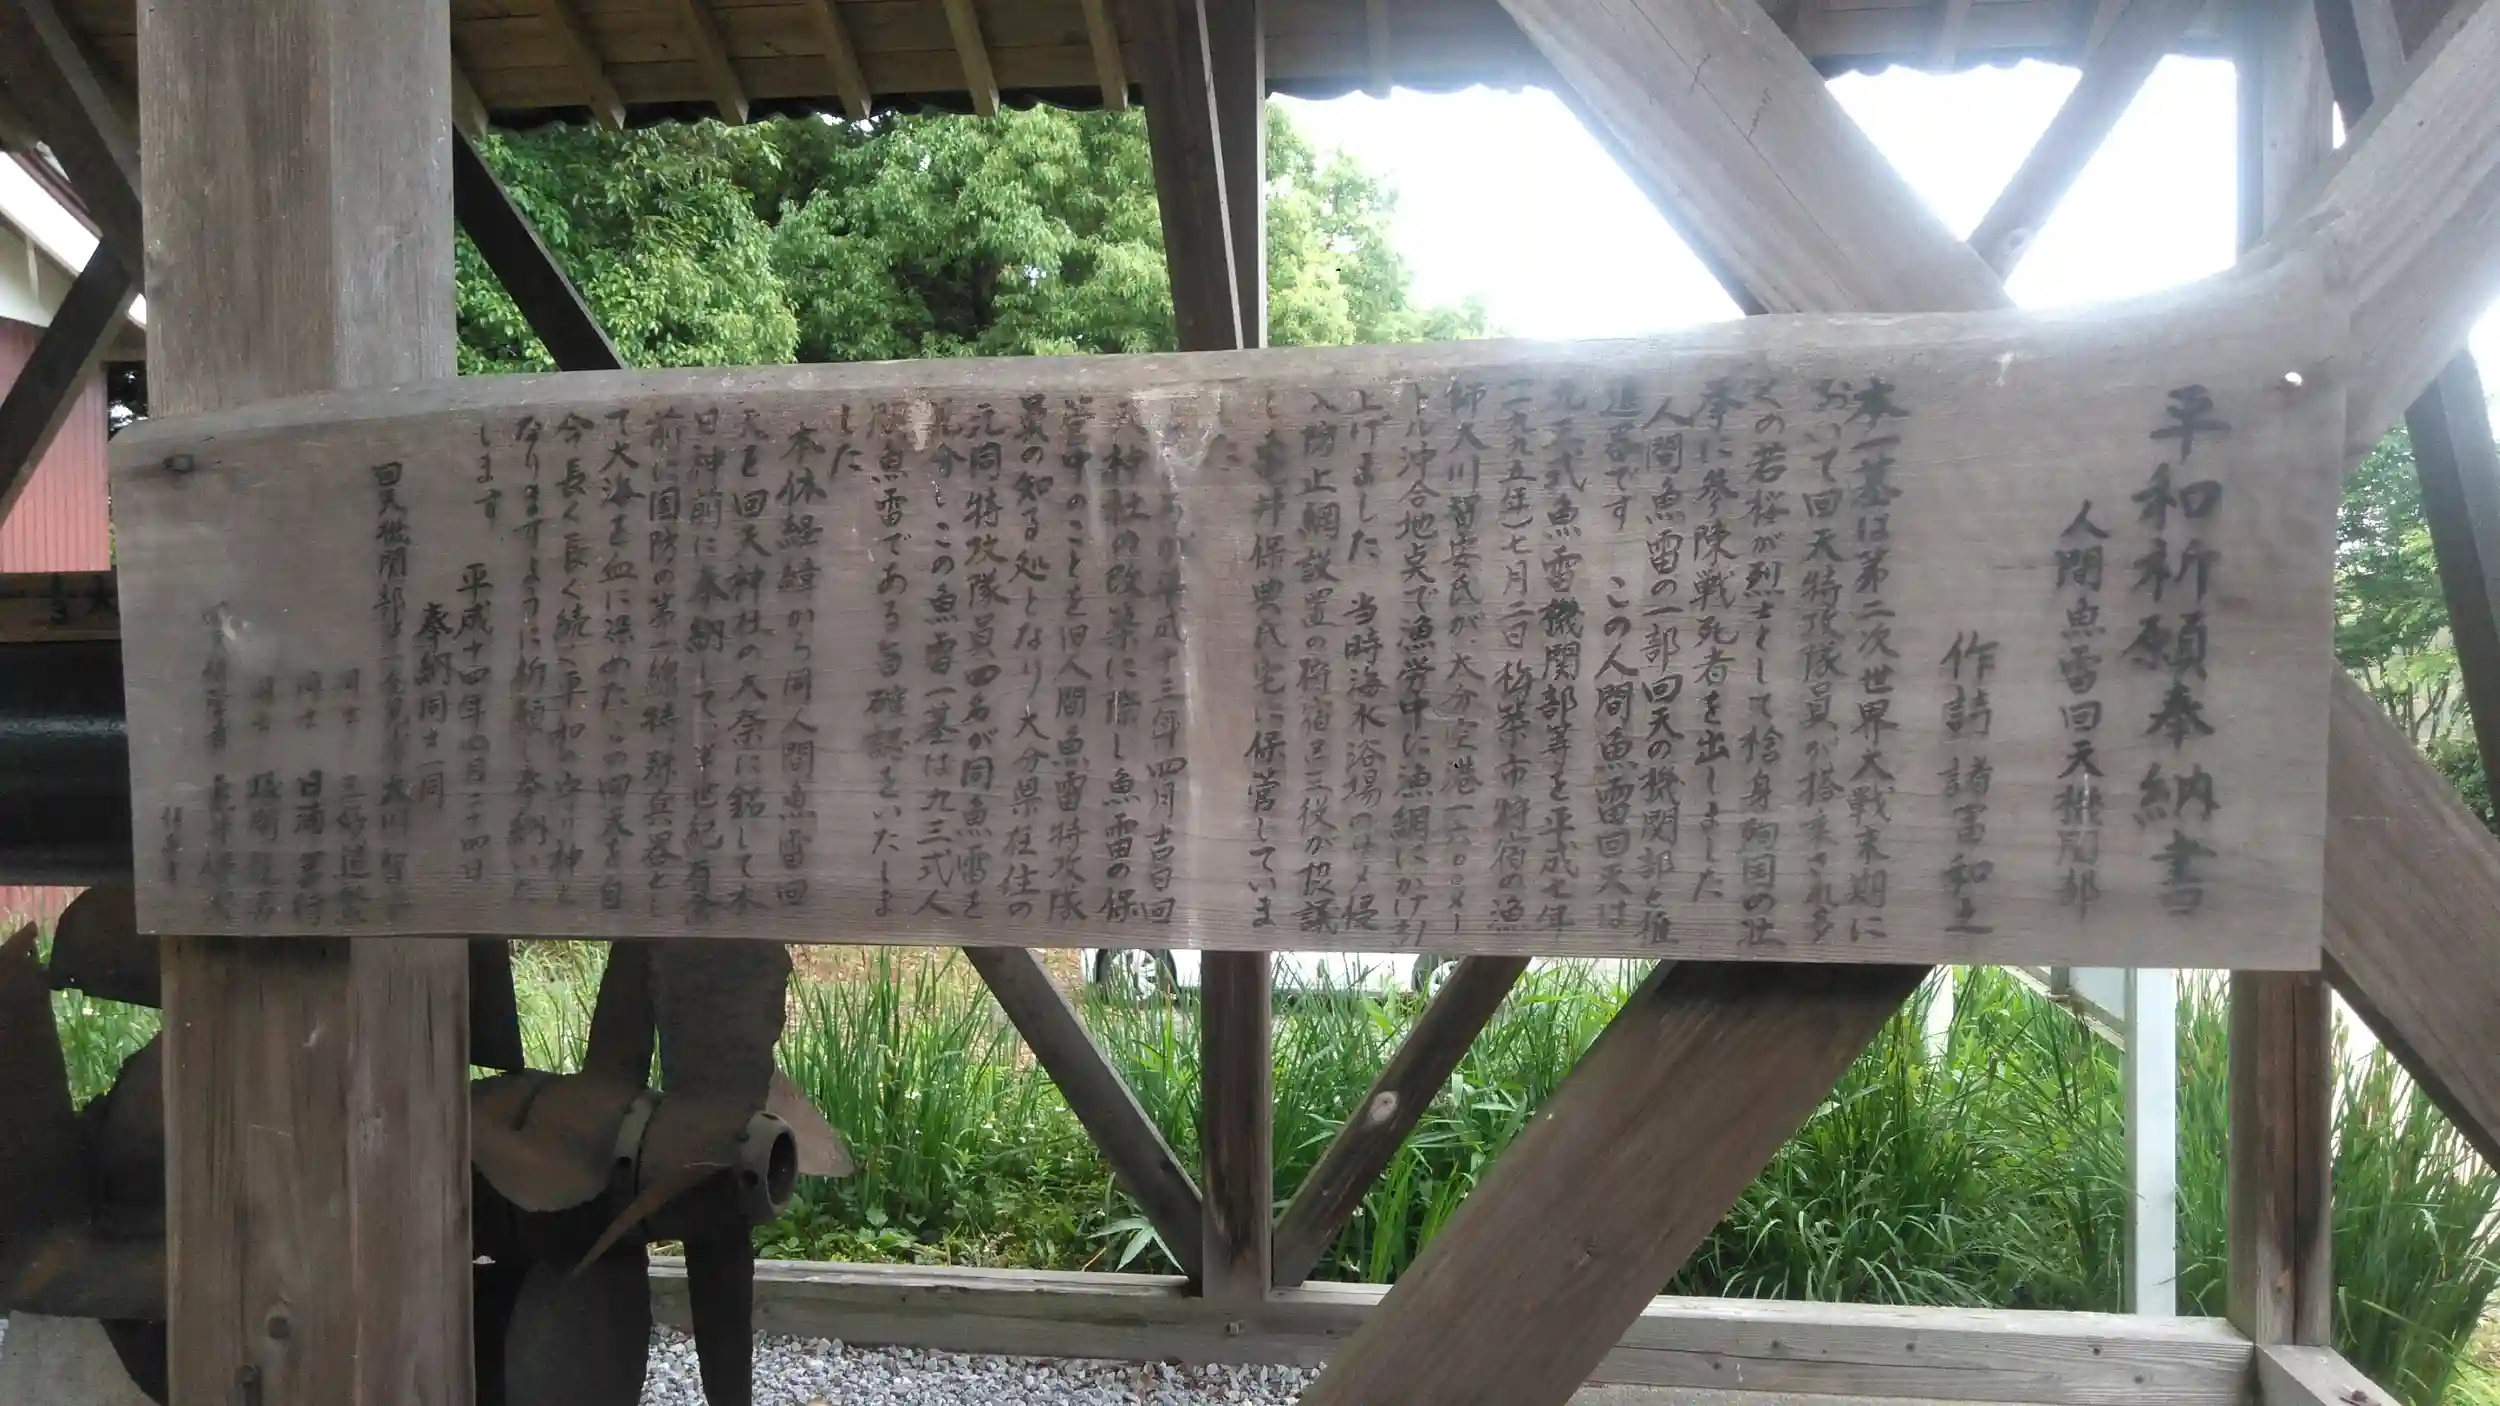 平和祈願奉納書
人間魚雷回天機関部
作詩 諸冨和士
本一基は第二次世界大戦末期に
おいて回天特攻隊員が搭乗され多
くの若桜が烈士として捨身殉国の壮
挙に参陳戦死者を出しました
人間魚雷の一部回天の機関部と推
進器です この人間魚雷回天は
九三式魚雷機関部等を平成七年
一九九五年)七月二日杵築市狩宿の漁
師大川智安氏が、大分空港一六〇〇メー
トル沖合地点で漁労中に漁網にかけ引
上げました 当時海水浴場のサメ侵
入防止網設置の狩宿区三役が協議
し亀井保典氏宅に保菅していま
した
が平成十三年四月吉日回
天神社の改築に際し魚雷の保
菅中のことを旧人間魚雷特攻隊
員の知る処となり大分県在住の
元同特攻隊員四名が同魚雷を
見分しこの魚雷一基は九三式人
間魚雷である旨確認をいたしま
した
本休経緯から同人間魚雷回
天を回天神社の大祭に銘して本
日神前に奉納して、半世紀有余
前に国防の第一線特殊兵器とし
て大海を血に染めたこの回天を自
今長く長く続く平和の守り神と
なりますように祈願し奉納いた
します
平成十四年四月二十四日
奉納同士一同
回天機関部
同士
同士 日浦
同士